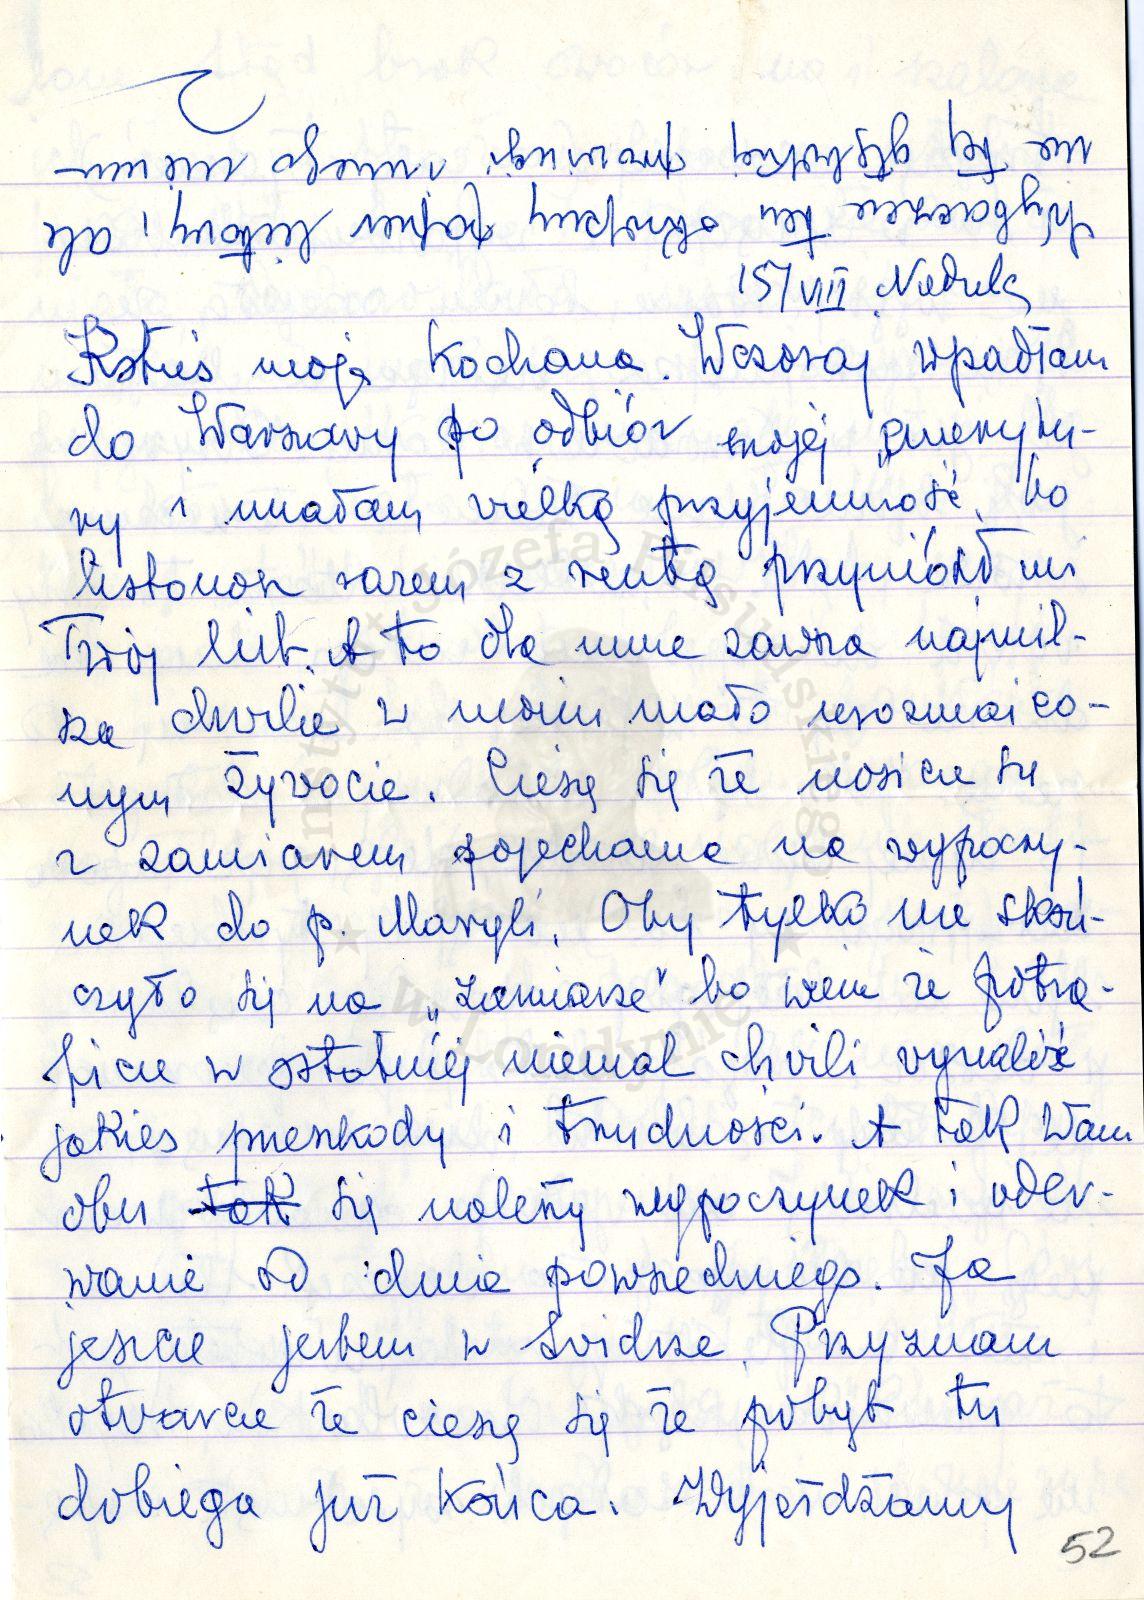 Wybaczcie ten okropny papier listowy, ale
na tej głębokiej prowincji innego nie um-
15/VIII Niedziela
Kotuś moja Kochana. Wczoraj wpadłam
do Warszawy po odbiór mojej „emerytu-
ry i miałam wielką przyjemność, bo
listonosz razem z rentą przyniósł mi
Twój list. A to dla mnie zawsze najmil-
sza chwila w moim mało urozmaico-
nym żywocie. Cieszę się że nosicie się
z zamiarem pojechania na wypoczy-
nek do p. Maryli. Oby tylko nie skoń-
czyło się na „zamiarze" bo wiem że potra-
ficie w ostatniej niemal chwili wynaleźć
jakieś przeszkody i trudności. A tak Wam
obu tak się należy wypoczynek i oder-
wanie od dnia powszedniego. Ja
jeszcze jestem w Świdrze. Przyznam
otwarcie że cieszę się że pobyt tu
dobiega już końca. Wyjeżdżamy
52
Instytut Józefa Piłsudskiego
w Londynie